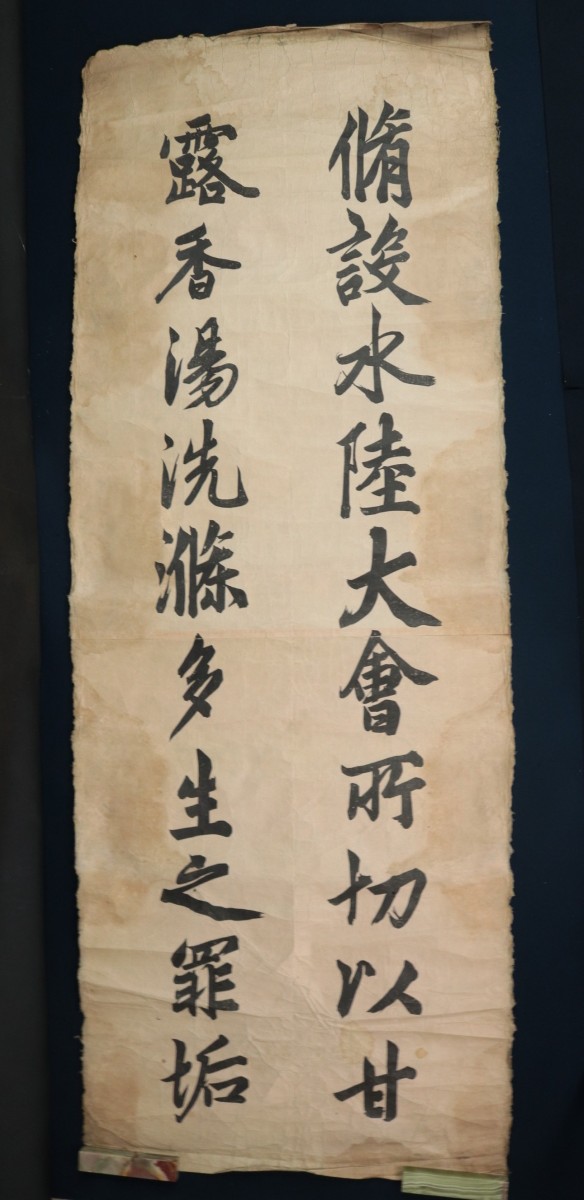 脩設水陸大會所切以甘
露香湯洗滌多生之罪垢